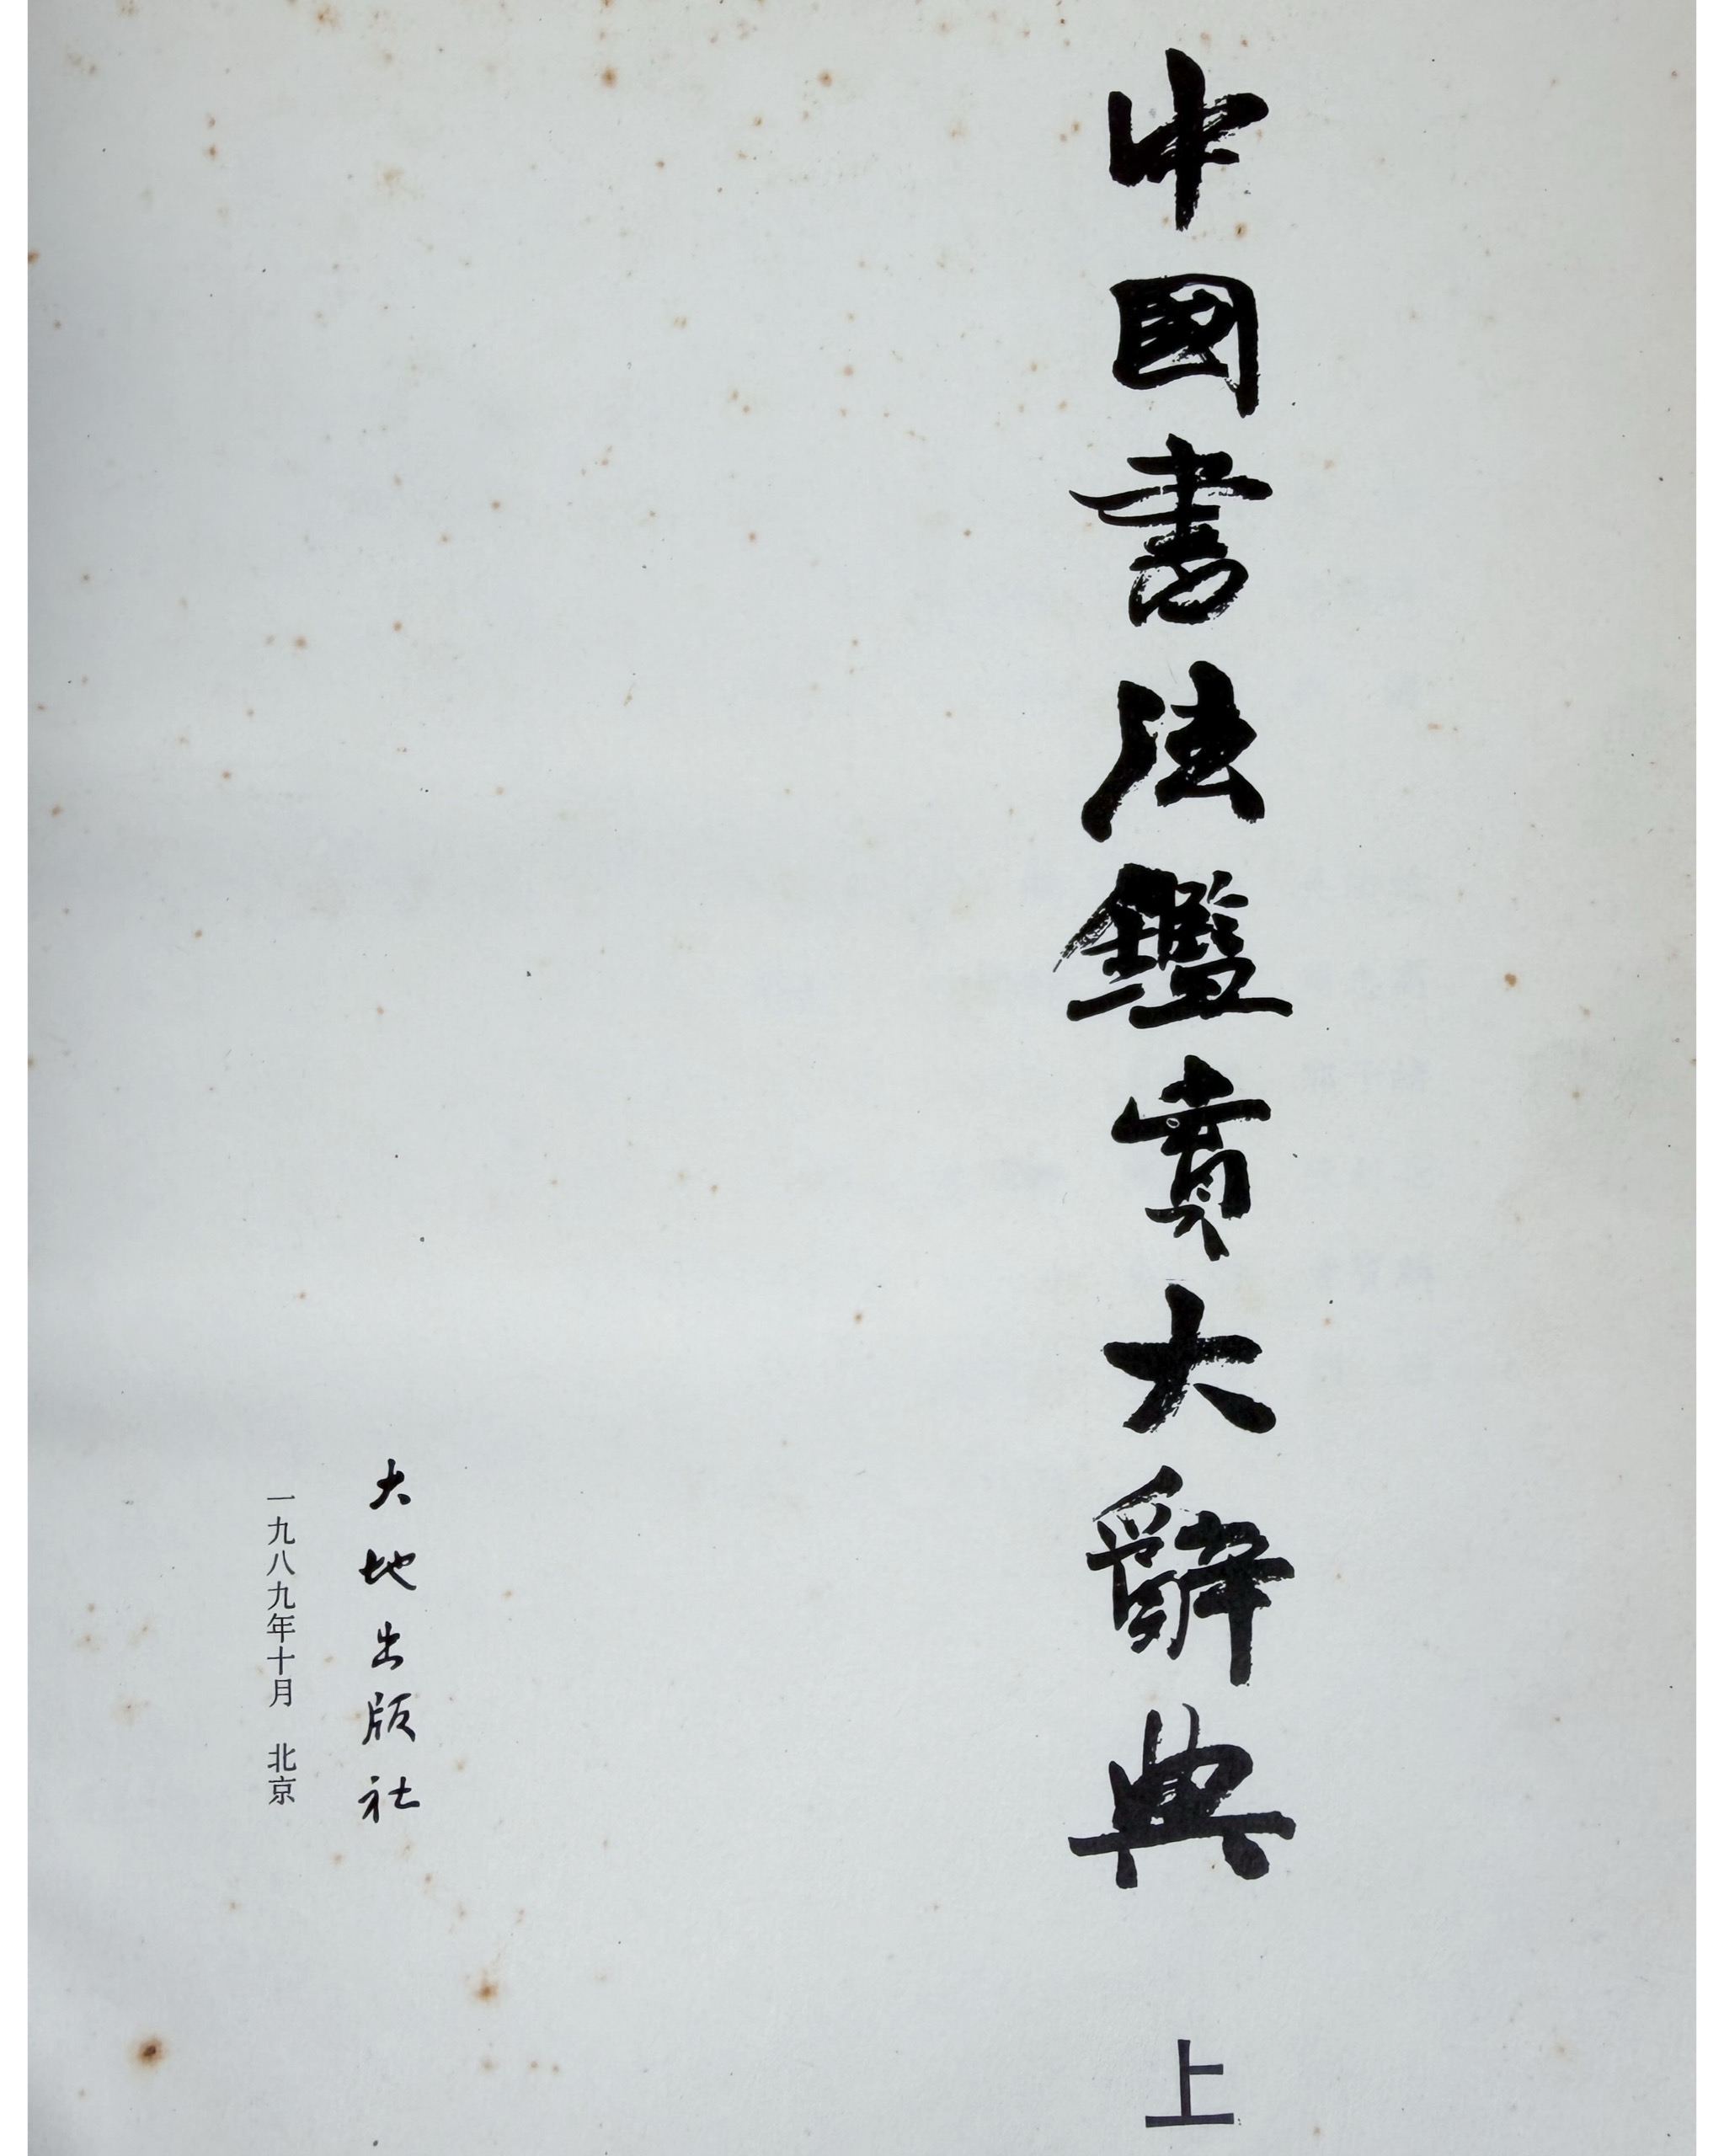 中國書法鑑賞大辭典
上
大地出版社
一九八九年十月 北京